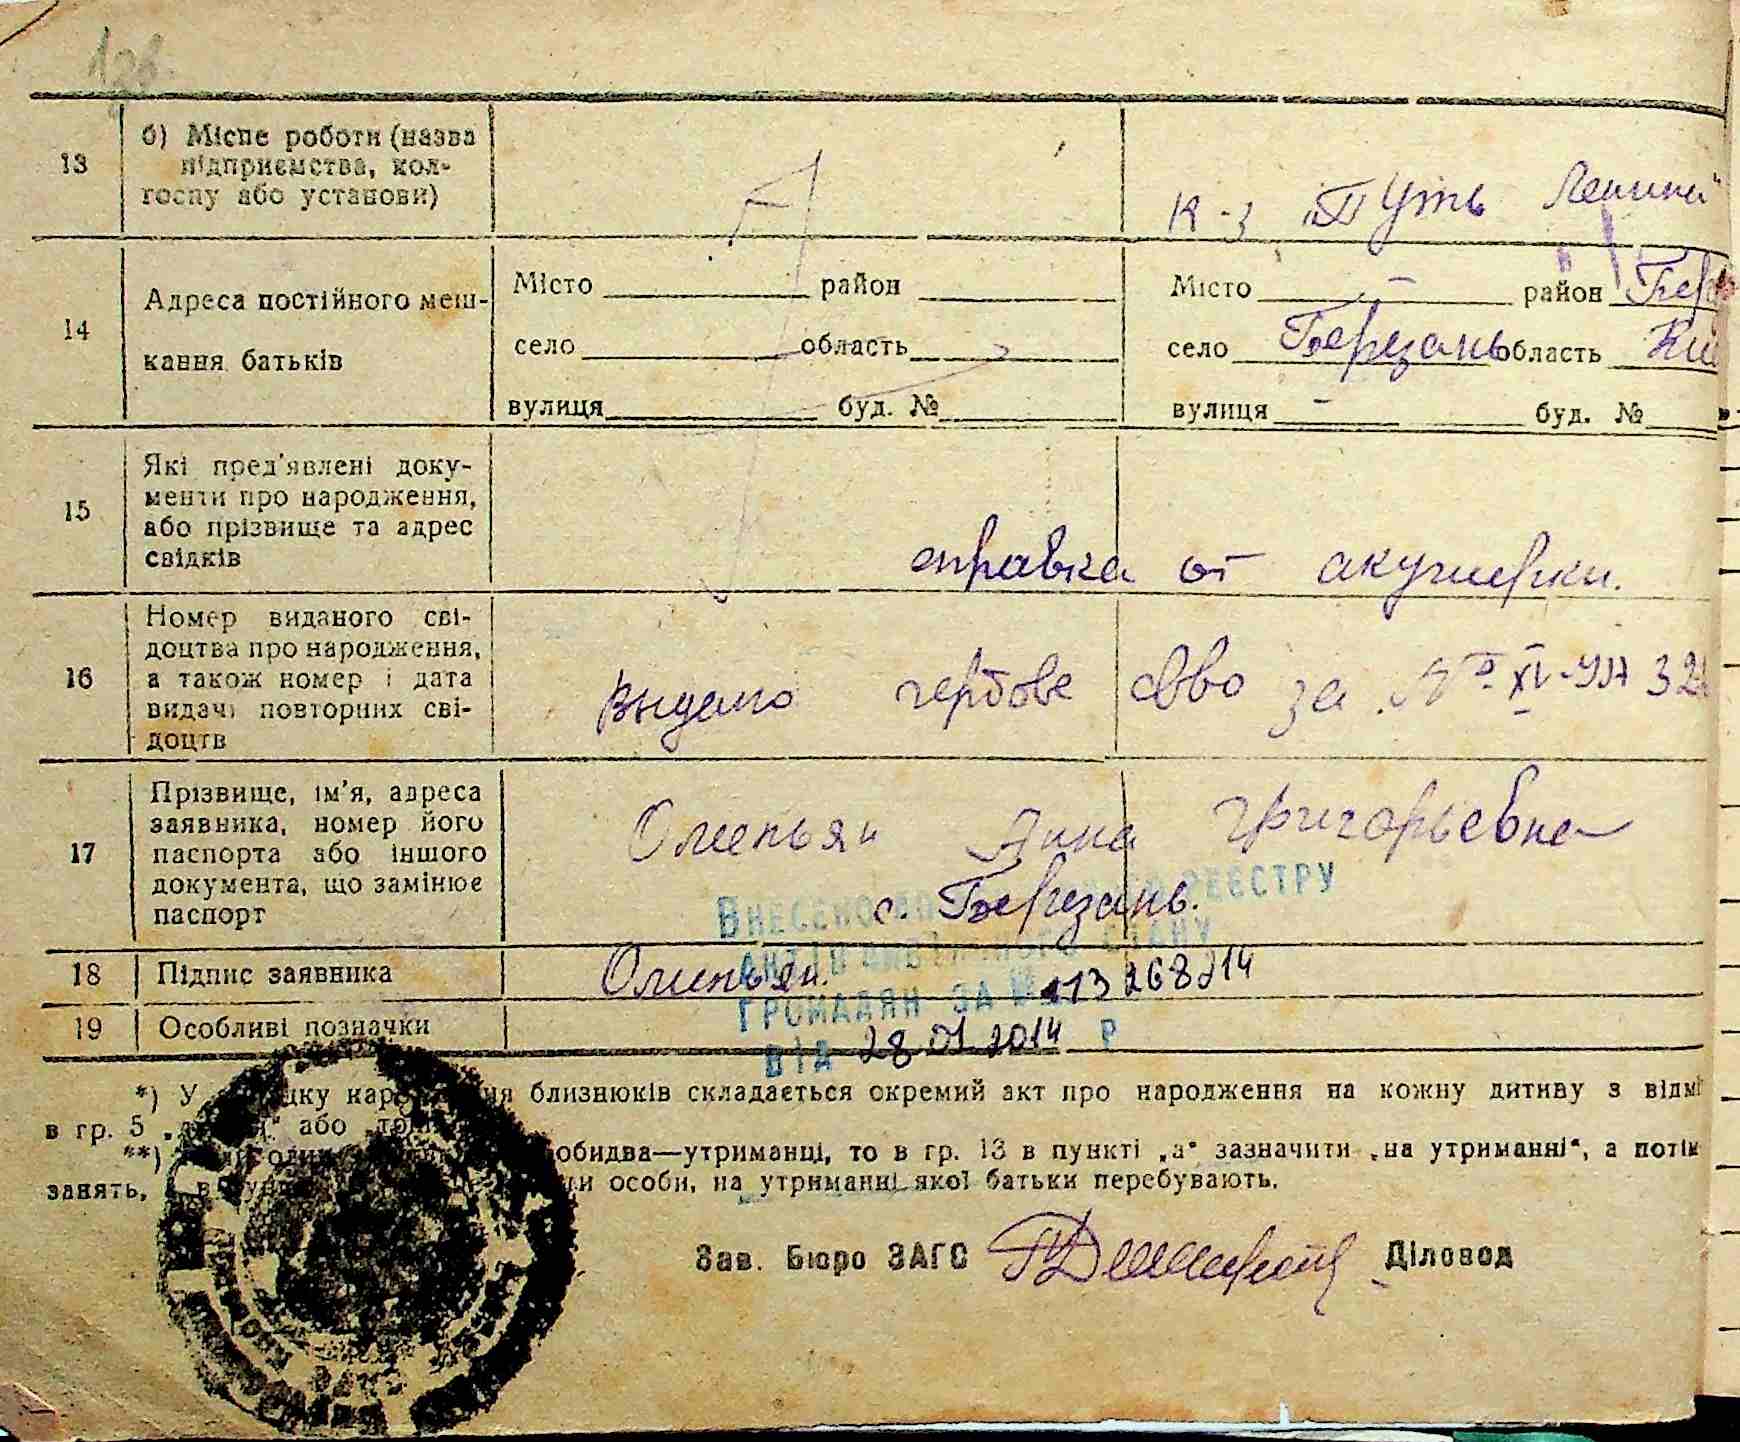 13
б) Місце роботи (назва
підприємства, кол-
госпу або установи)
к-з „Путь Ленина"
14
Адреса постійного меш-
кання батьків
Місто район
село область
вулиця буд. №
Місто — район Бер
село Березань область Ки
вулиця — буд. №
15
Які пред'явлені доку-
менти про народження,
або прізвище та адрес
свідків
справка от акушерки.
16
Номер виданого сві-
доцтва про народження,
а також номер і дата
видачі повторних сві-
доцтв
Видано гербове св-во за № XIV-УЛ 32
17
Прізвище, ім'я, адреса
заявника, номер його
паспорта або іншого
документа, що замінює
паспорт
Омельян Анна Григорьевна
с. Березань.
Внесено реєстру
актів цивільного стану
громадян за №
від 28 01 2014 р
18
Підпис заявника
Омельян.
19
Особливі позначки
*) У близнюків складається окремий акт про народження на кожну дитину з відмі
в гр. 5 або
**) обидва—утриманці, то в гр. 13 в пункті „а" зазначити „на утриманні", а потім
занять, особи, на утриманні якої батьки перебувають.
Зав. Бюро ЗАГС Діловод